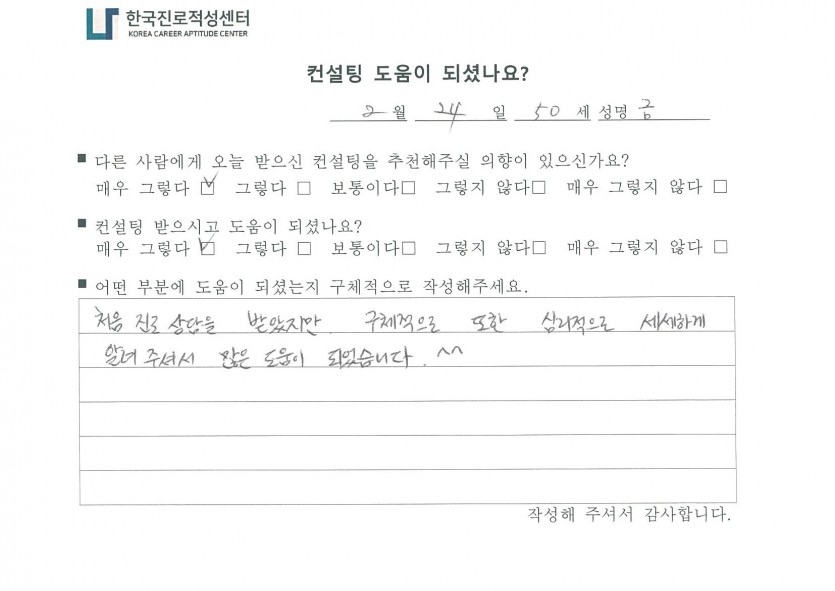 한국진로적성센터
KOREA CAREER APTITUDE CENTER
컨설팅 도움이 되셨나요?
2 월 24 일 50 세 성명 금
■ 다른 사람에게 오늘 받으신 컨설팅을 추천해주실 의향이 있으신가요?
매우 그렇다 ☑ 그렇다 □ 보통이다□ 그렇지 않다□ 매우 그렇지 않다 □
■ 컨설팅 받으시고 도움이 되셨나요?
매우 그렇다 ☑ 그렇다 □ 보통이다□ 그렇지 않다□ 매우 그렇지 않다 □
■ 어떤 부분에 도움이 되셨는지 구체적으로 작성해주세요.
처음 진로 상담을 받았지만 구체적으로 또한 심리적으로 세세하게
알려 주셔서 많은 도움이 되었습니다. ^^
작성해 주셔서 감사합니다.